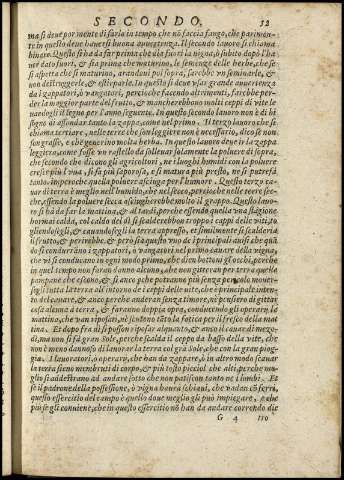 SECONDO. 52
ma si deue por mente di farla in tempo che nõ faccia fango, che parimen-
te in questo deue hauersi buona auuertenza. Il secondo lauoro si chiama
binare. Questo si hà da far prima che dia fuori la vigna, ò subito dopò l'ha
uer dato fuori, & sia prima che maturino, le semenze delle herbe, che se
si aspetta che si maturino, arandoui poi sopra, sarebbe vn seminarle, &
non destruggerle, & estirparle. In questo si deue vsar grande auuertenza
da i zappatori, ò vangatori, percioche facendo altrimenti, farebbe per-
der la maggior parte del frutto, & mancherebbono molti ceppi di vite le
uandogli il legno per l'anno seguente. In questo secondo lauoro non è di bi
sogno di affondar tanto la zappa, come nel primo. Il terzo lauoro che si
chiama tertiare, nelle terre che son leggiere non è necessario, dico se non
son grasse, e che generino molta herba. In questo lauoro deue ir la zappa
leggiera, come fosse vn rastello da solleuar solamente la poluere di sopra,
che secondo che dicono gli agricoltori, ne i luoghi humidi con la poluere
cresce più l'vua, si fà più saporosa, e si matura più presto, ne si putrefà
tanto, imperoche quella poluere asciuga pur l'humore. Questo terzo ca-
uar di terra è meglio nell'humido, che nel secco, percioche nelle terre sec-
che, essendo la poluere secca asciugherebbe molto il grappo. Questo lauo-
ro si hà da far la mattina, & al tardi, perche essendo quella vna stagione
hormai calda, col caldo del dì si scalderebbon troppo i ceppi delle viti, to
gliendogli, & cauandogli la terra appresso, et similmente si scalderia
il frutto, & perirebbe. & però sia questo vno de i principali auisi che quã
do si condurranno i zappatori, ò vangatori nel primo cauare della vigna,
che vi si conducano in ogni modo primo, che dien bottoni gl'occhi, perche
in quel tempo non faran danno alcuno, che non gitteran per terra quella
pampane che escono, & si anco pche potranno più senza pericolo mouer-
segli tutta la terra all'intorno de i ceppi delle viti, che è principale inten-
to del cauare, & anco perche anderan senza timore, ne pensiero di gittar
cosa alcuna à terra, & faranno doppia opra, conducendo gli operari, la
mattina, che van riposati, ne sentono tãto la fatica per il fresco della mat
tina. Et dopò fra dì si posson riposar alquanto, & anco il cauar di mezo-
di, ma non si fà gran Sole, perche scalda il ceppo da basso della vite, che
non è meno dannoso di lauorar la terra col grã Sole, che con la gran piog-
gia. I lauoratori, ò operarij, che han da zappare, ò in altro modo scauar
la terra sieno membruti di corpo, & più tosto piccioli che alti, perche me-
glio si addestrano ad andare sotto che non patiscon tanto ne i lombi. Et
se il padrone della possessione, ò vigna haurà schiaui, che vadan cõ ferri,
questo essercitio del campo è quello doue meglio gli può impiegare, & che
più se gli conuiene, che in questo essercitio nõ han da andare correndo die
G 4 tro